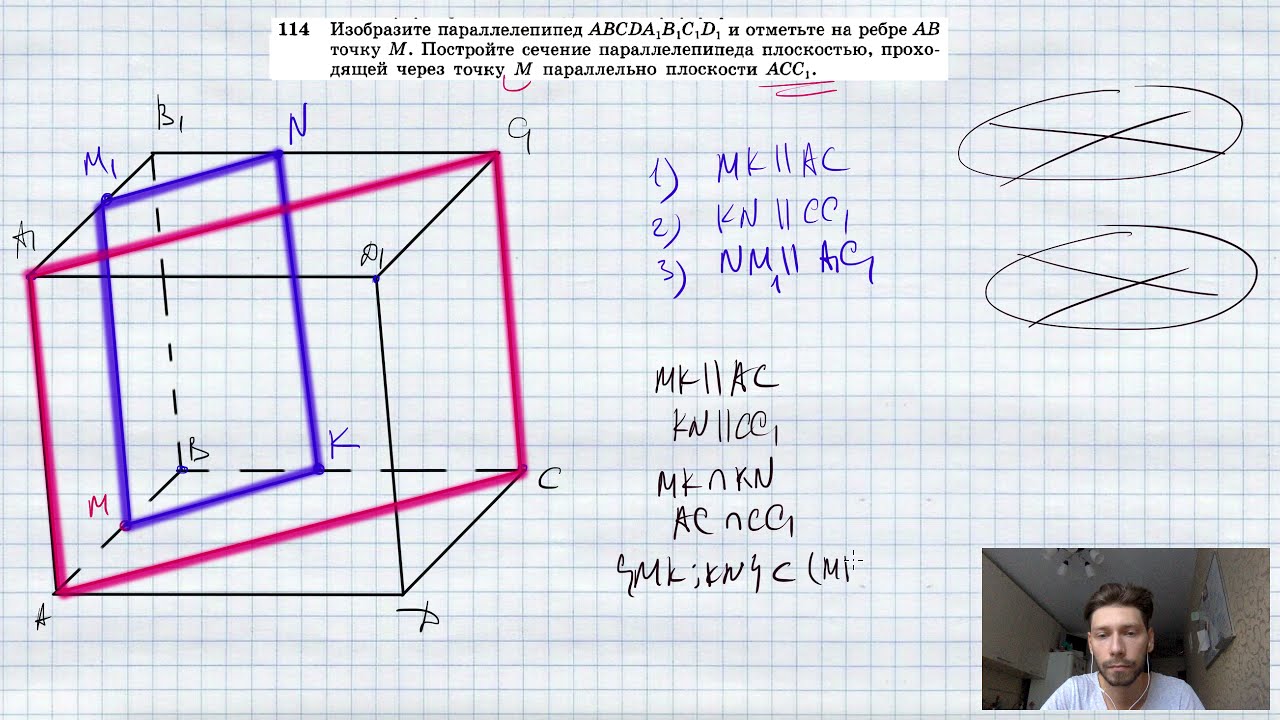 114 Изобразите параллелепипед ABCDA₁B₁C₁D₁ и отметьте на ребре AB
точку M. Постройте сечение параллелепипеда плоскостью, прохо-
дящей через точку M параллельно плоскости ACC₁.
B₁
N
C₁
M₁
A₁
D₁
B
K
M
C
A
D
1) MK || AC
2) KN || CC₁
3) NM₁ || A₁C₁
MK || AC
KN || CC₁
MK ∩ KN
AC ∩ CC₁
{MK; KN} ⊂ (M